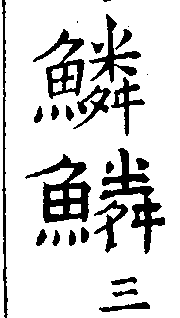 鱗
鱗
三